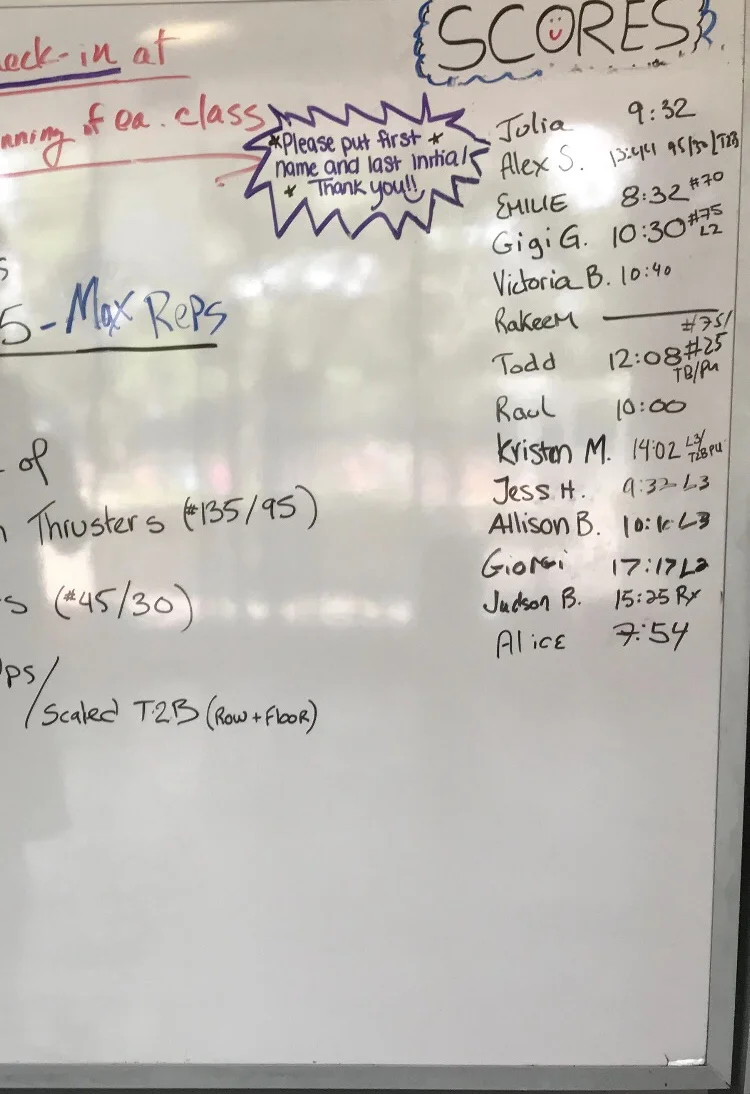 SCORES
eck-in at
nning of ea. class
*Please put first *
name and last initial
* Thank you!!
Julia 9:32
Alex S. 13:44 95/30/T2B
EMILIE 8:32 #70
Gigi G. 10:30 #75
L2
Victoria B. 10:40
RakeeM
S
5 - Max Reps
#75/
Todd 12:08 #25
TB/PU
Raul 10:00
of
Kristen M. 14:02 L3/
T2BPU
Jess H. 9:32 L3
Thrusters (#135/95)
Allison B. L3
17:17 L2
s (#45/30)
Judson B. 15:25 Rx
Alice 7:54
ps/
Scaled T2B (Row + Floor)